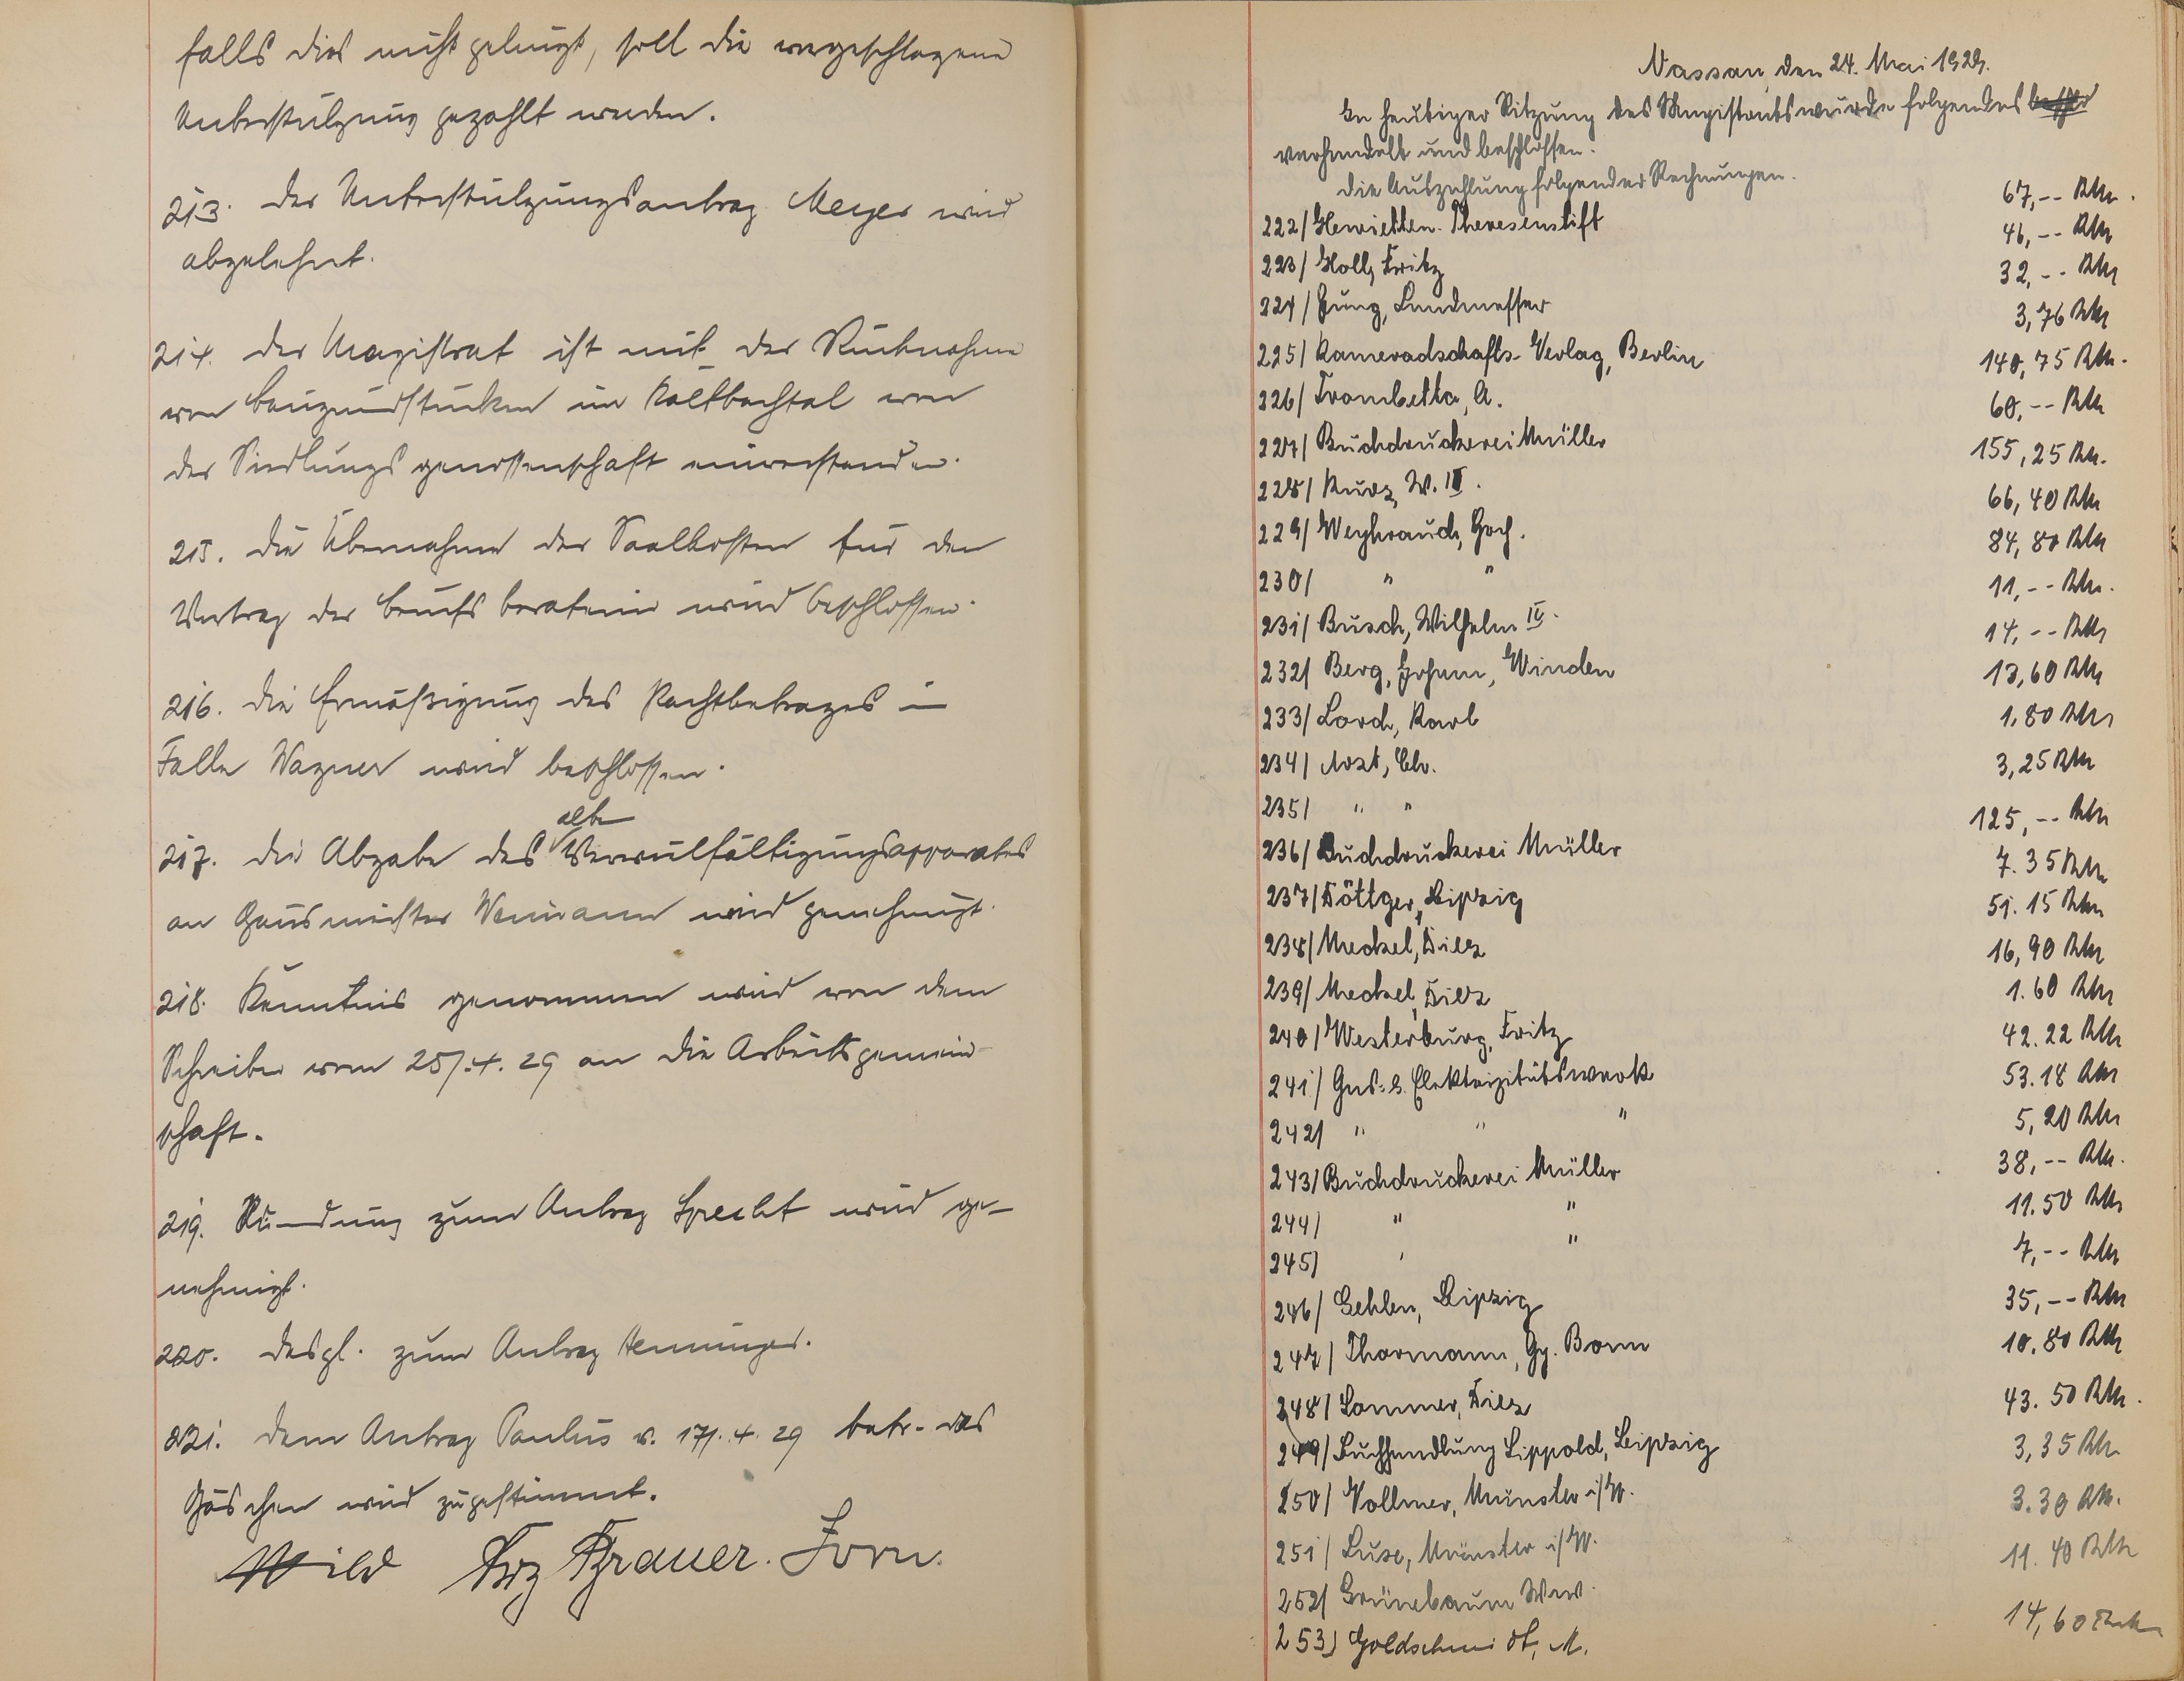 falls dies nicht gelingt, soll die vorgeschlagene
Unterstützung gezahlt werden.
213. Der Unterstützungsantrag Meyer wird
abgelehnt.
214. Der Magistrat ist mit der Rücknahme
von Baugrundstücken im Kaltbachtal von
der Siedlungsgenossenschaft einverstanden.
215. Die Übernahme der Saalkosten für den
Vortrag der Berufsberaterin wird beschlossen.
216. Die Ermäßigung des Pachtbetrages im
Falle Wagner wird beschlossen.
alten
217. Die Abgabe des Vervielfältigungsapparates
an Hausmeister wird genehmigt.
218. Kenntnis genommen wird von dem
Schreiben vom 25/.4.29 an die Arbeitsgemein-
schaft.
219. Stundung zum Antrag Specht wird ge-
nehmigt.
220. Desgl. zum Antrag Henninger.
221. Dem Antrag Paulus v. 17/.4.29 betr. das
Häuschen wird zugestimmt.
Wild Brauer. Zorn.
Nassau, den 24. Mai 1929.
In heutiger Sitzung des Magistrats wurde folgendes
verhandelt und beschlossen.
Die Auszahlung folgender Rechnungen.
222/ Henrietten-Theresenstift 67,-- RM.
223/ Holl, Fritz 46,-- RM
224/ Jung, Landmesser 32,-- RM
225/ Kameradschafts-Verlag, Berlin 3,76 RM
226/ Trombetta, A. 140,75 RM.
227/ Buchdruckerei Müller 60,-- RM
228/ Kurz, W. III. 155,25 RM.
229/ Weyhrauch, Hch. 66,40 RM
230/ " " 84,80 RM
231/ Busch, Wilhelm IV. 11,-- RM.
232/ Berg, Johann, Winden 14,-- RM
233/ Lorch, Karl 13,60 RM
234/ Arzt, Chr. 1,80 RM
235/ " " 3,25 RM
236/ Buchdruckerei Müller 125,-- RM
237/ Böttger, Leipzig 7.35 RM
238/ Meckel, Diez 51.15 RM
239/ Meckel, Diez 16,90 RM
240/ Westerburg, Fritz 1.60 RM
241/ Gas- u. Elektrizitätswerk 42.22 RM
242/ " " " 53.18 RM
243/ Buchdruckerei Müller 5,20 RM
244/ " " 38,-- RM.
245/ " " 11.50 RM
246/ Gehlen, Leipzig 7,-- RM
247/ Thormann, Gg. Bonn 35,-- RM
248/ Sommer, Diez 10.80 RM
249/ Buchhandlung Lippold, Leipzig 43.50 RM.
250/ Vollmer, Münster i/W. 3,35 RM
251/ Luse, Münster i/W. 3.30 RM.
252/ Grünebaum Ww. 11.40 RM
253/ Goldschmidt, M. 14,60 RM